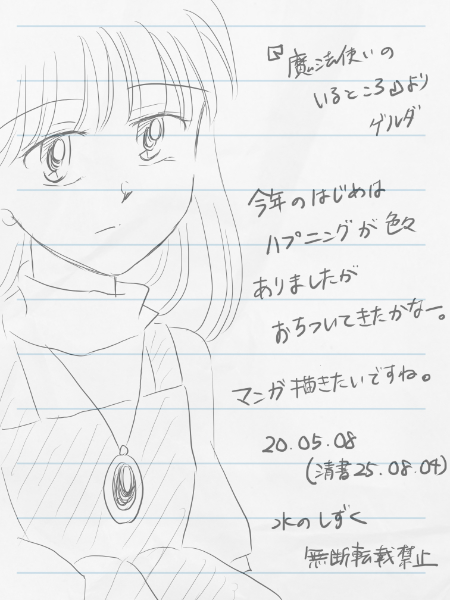 『魔法使いの
いるところ』より
ゲルダ
今年のはじめは
ハプニングが色々
ありましたが
おちついてきたかなー。
マンガ描きたいですね。
20.05.08
(清書25.08.04)
水のしずく
無断転載禁止